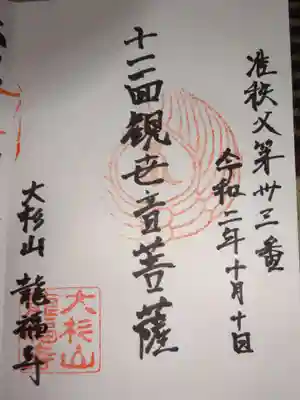 准秩父第卅三番
令和二年十月十日
十一面観世音菩薩
大杉山 龍福寺
大杉山